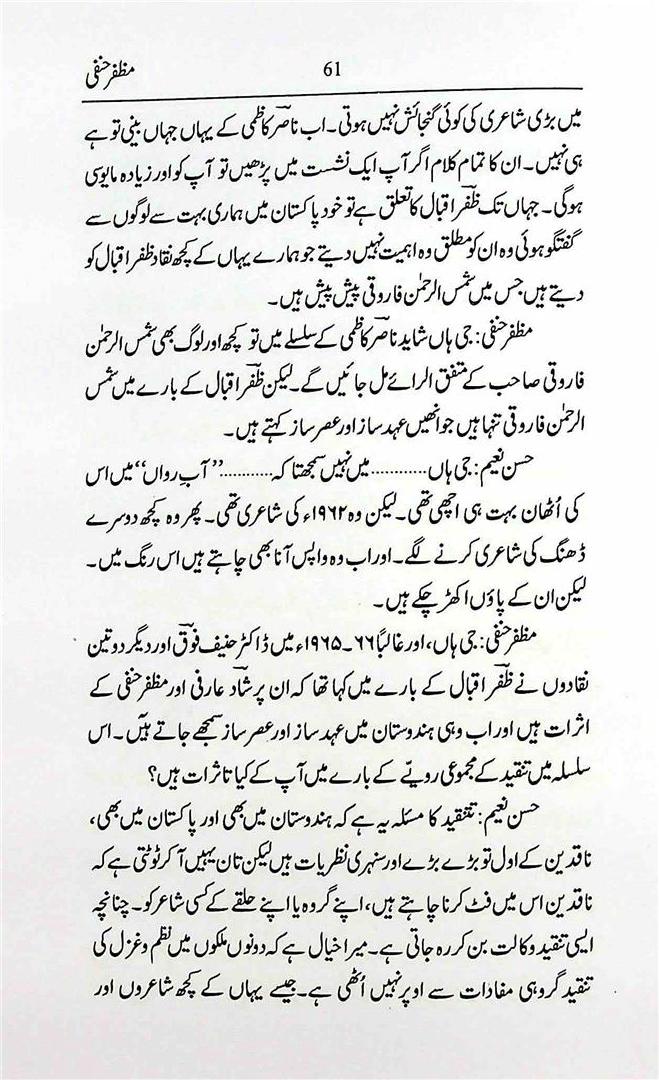 مظفر حنفی 61
میں بڑی شاعری کی کوئی گنجائش نہیں ہوتی۔ اب ناصرؔ کاظمی کے یہاں جہاں بینی تو ہے
ہی نہیں۔ ان کا تمام کلام اگر آپ ایک نشست میں پڑھیں تو آپ کو اور زیادہ مایوسی
ہوگی۔ جہاں تک ظفرؔ اقبال کا تعلق ہے تو خود پاکستان میں ہماری بہت سے لوگوں سے
گفتگو ہوئی وہ ان کو مطلق وہ اہمیت نہیں دیتے جو ہمارے یہاں کے کچھ نقاد ظفرؔ اقبال کو
دیتے ہیں جس میں شمس الرحمٰن فاروقی پیش پیش ہیں۔
مظفر حنفی: جی ہاں شاید ناصرؔ کاظمی کے سلسلے میں تو کچھ اور لوگ بھی شمس الرحمٰن
فاروقی صاحب کے متفق الرائے مل جائیں گے۔ لیکن ظفرؔ اقبال کے بارے میں شمس
الرحمٰن فاروقی تنہا ہیں جو انھیں عہد ساز اور عصر ساز کہتے ہیں۔
حسن نعیم: جی ہاں............میں نہیں سمجھتا کہ............”آبِ رواں“ میں اس
کی اُٹھان بہت ہی اچھی تھی۔ لیکن وہ ۱۹۶۲ء کی شاعری تھی۔ پھر وہ کچھ دوسرے
ڈھنگ کی شاعری کرنے لگے۔ اور اب وہ واپس آنا بھی چاہتے ہیں اس رنگ میں۔
لیکن ان کے پاؤں اکھڑ چکے ہیں۔
مظفر حنفی: جی ہاں، اور غالباً ۶۶۔۱۹۶۵ء میں ڈاکٹر حنیف فوقؔ اور دیگر دو تین
نقادوں نے ظفرؔ اقبال کے بارے میں کہا تھا کہ ان پر شادؔ عارفی اور مظفر حنفی کے
اثرات ہیں اور اب وہی ہندوستان میں عہد ساز اور عصر ساز سمجھے جاتے ہیں۔ اس
سلسلہ میں تنقید کے مجموعی رویّے کے بارے میں آپ کے کیا تاثرات ہیں؟
حسن نعیم: تنقید کا مسئلہ یہ ہے کہ ہندوستان میں بھی اور پاکستان میں بھی،
ناقدین کے اول تو بڑے بڑے اور سنہری نظریات ہیں لیکن تان یہیں آکر ٹوٹتی ہے کہ
ناقدین اس میں فٹ کرنا چاہتے ہیں، اپنے گروہ یا اپنے حلقے کے کسی شاعر کو۔ چنانچہ
ایسی تنقید وکالت بن کر رہ جاتی ہے۔ میرا خیال ہے کہ دونوں ملکوں میں نظم و غزل کی
تنقید گروہی مفادات سے اوپر نہیں اُٹھی ہے۔ جیسے یہاں کے کچھ شاعروں اور